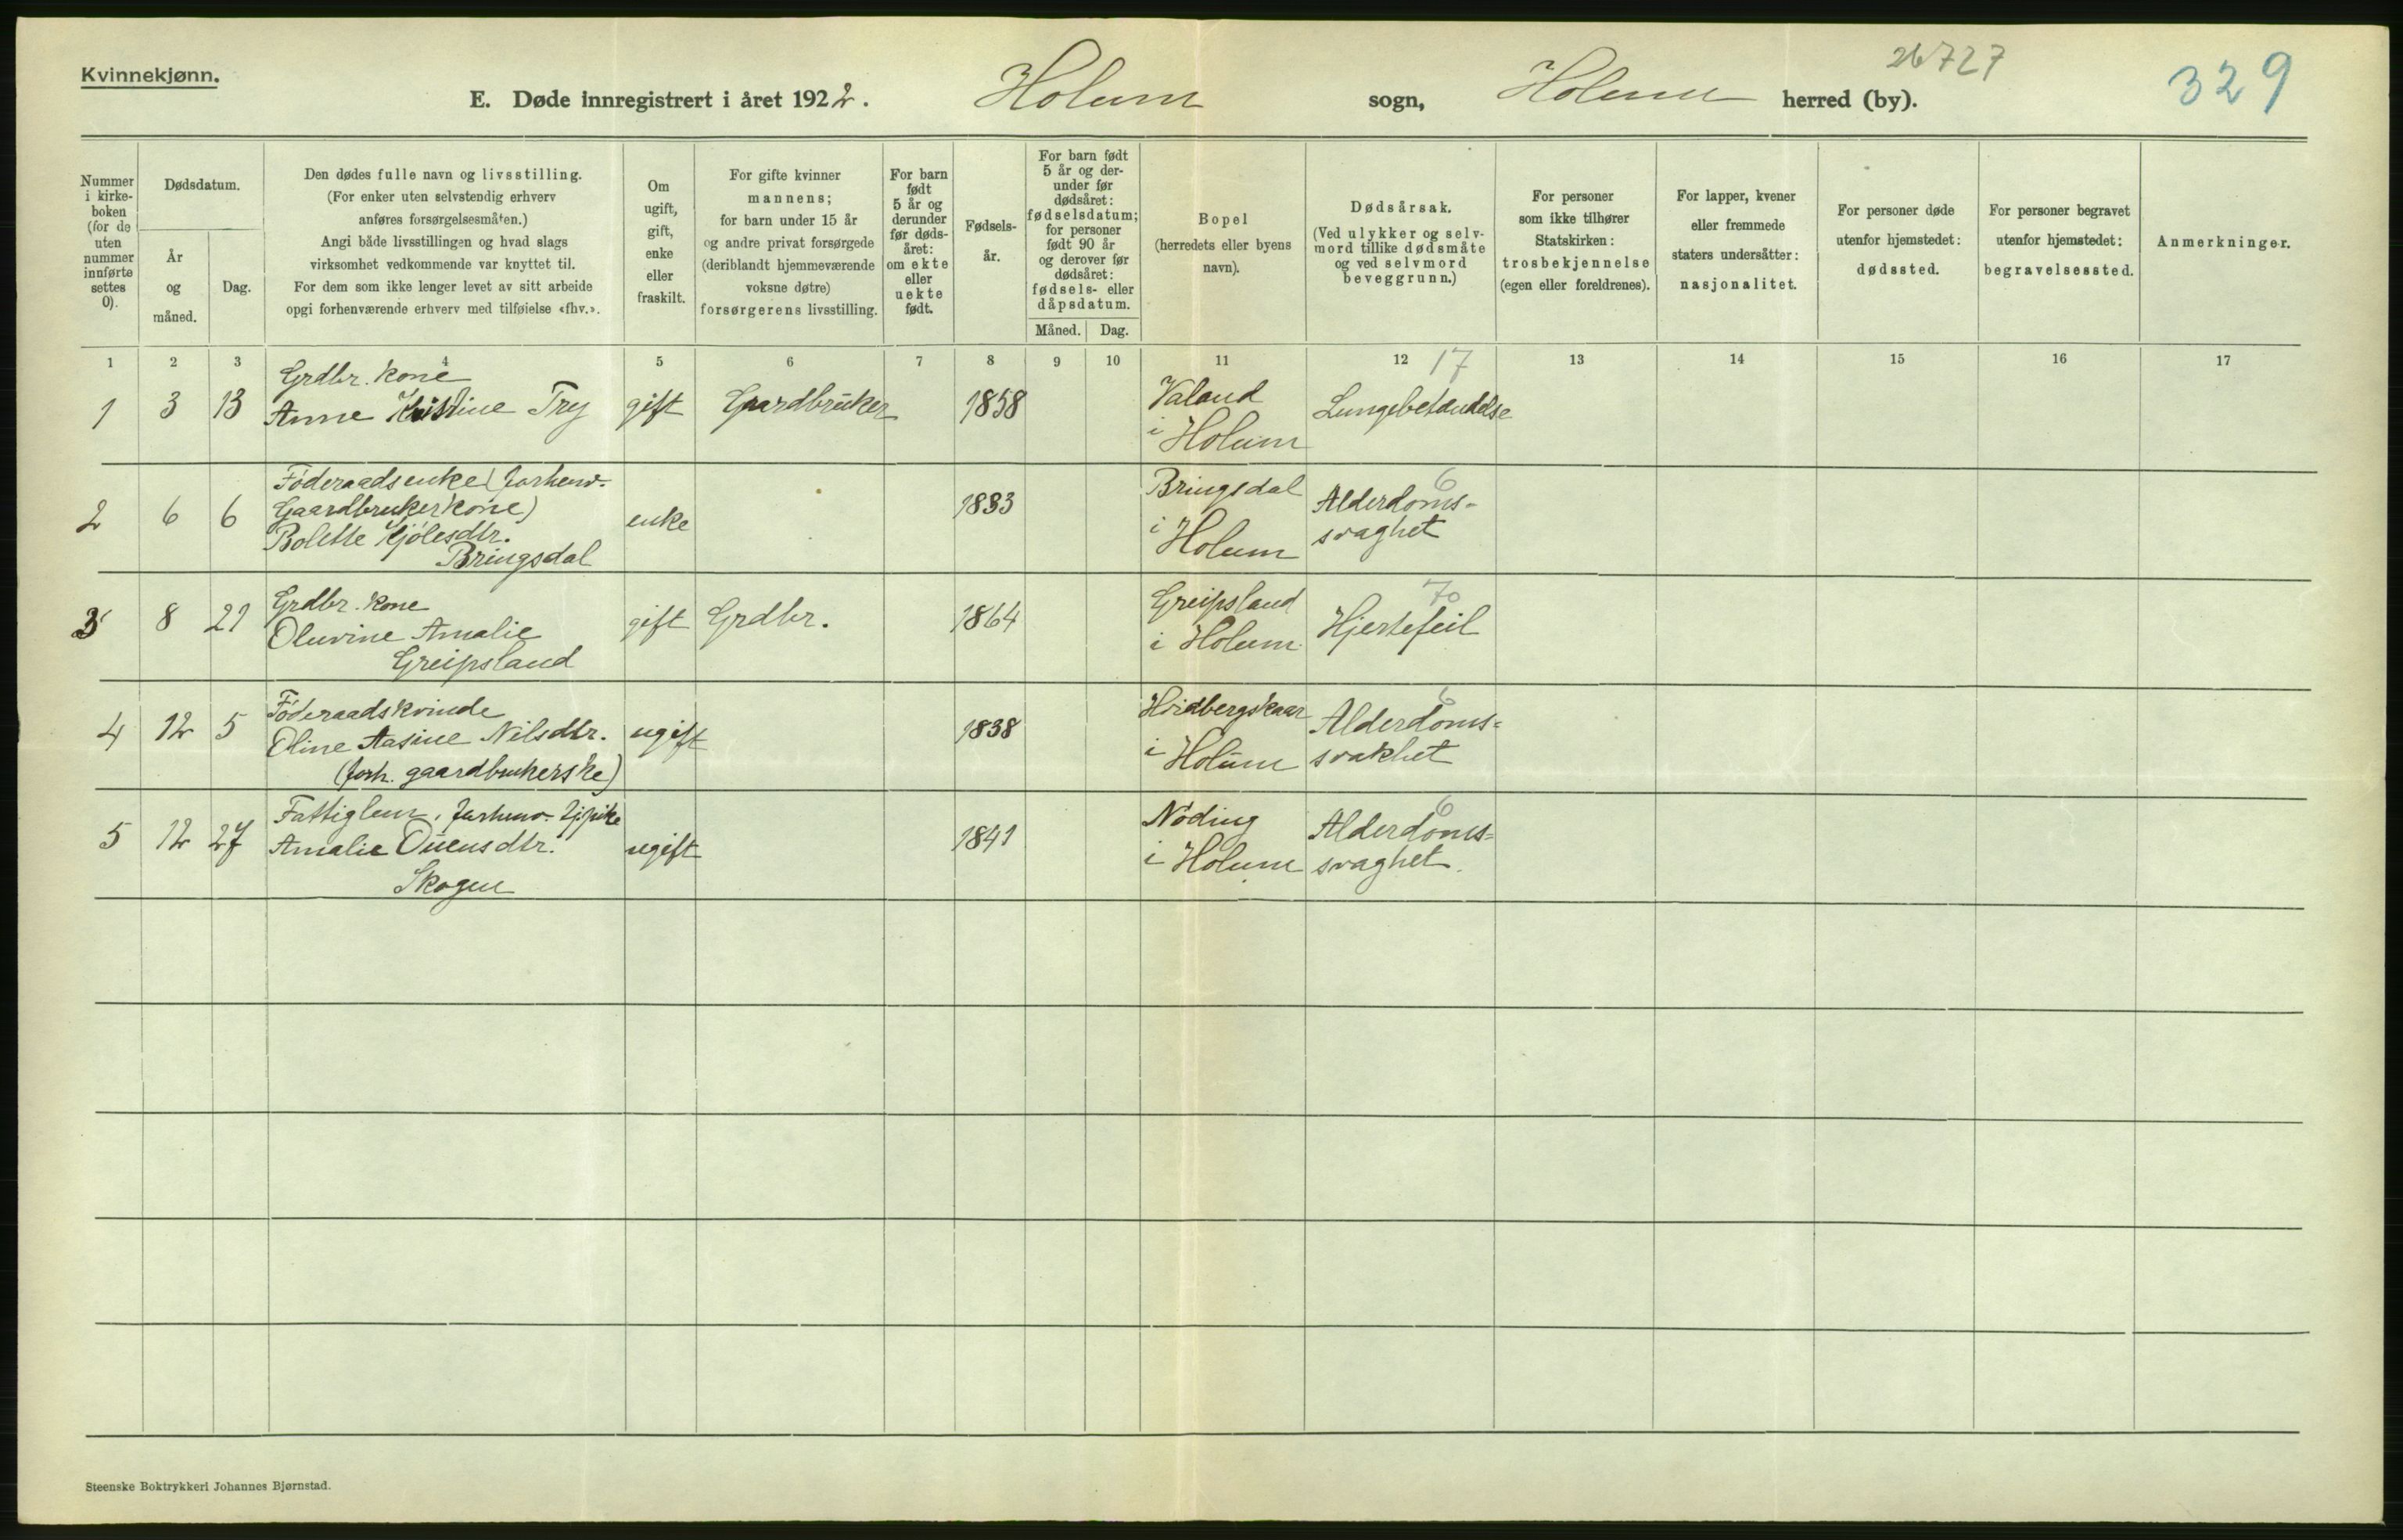 Kvinnekjønn.
E. Døde innregistrert i året 1922. Holum sogn, Holum herred (by).
26727
329
Nummer i kirke-boken (for de uten nummer innførte settes 0).
Dødsdatum.
År og måned.
Dag.
Den dødes fulle navn og livsstilling.
(For enker uten selvstendig erhverv
anføres forsørgelsesmåten.)
Angi både livsstillingen og hvad slags
virksomhet vedkommende var knyttet til.
For dem som ikke lenger levet av sitt arbeide
opgi forhenværende erhverv med tilføielse «fhv.».
Om
ugift,
gift,
enke
eller
fraskilt.
For gifte kvinner
mannens;
for barn under 15 år
og andre privat forsørgede
(deriblandt hjemmeværende
voksne døtre)
forsørgerens livsstilling.
For barn
født
5 år og
derunder
før døds-
året:
om ekte
eller
uekte
født.
Fødsels-
år.
For barn født
5 år og der-
under før
dødsåret:
fødselsdatum;
for personer
født 90 år
og derover før
dødsåret:
fødsels- eller
dåpsdatum.
Måned. Dag.
Bopel
(herredets eller byens
navn).
Dødsårsak.
(Ved ulykker og selv-
mord tillike dødsmåte
og ved selvmord
beveggrunn.)
For personer
som ikke tilhører
Statskirken:
trosbekjennelse
(egen eller foreldrenes).
For lapper, kvener
eller fremmede
staters undersåtter:
nasjonalitet.
For personer døde
utenfor hjemstedet:
dødssted.
For personer begravet
utenfor hjemstedet:
begravelsessted.
Anmerkninger.
1 2 3 4 5 6 7 8 9 10 11 12 13 14 15 16 17
17
Grdbr. kone
1 3 13 Anne Kristine Try gift Gaardbruker 1858 Valand Lungebetændelse
i Holum
Föderaadsenke (forhenv. Bringsdal 6
2 6 6 Gaardbrukerkone) enke 1833 Alderdoms-
Bolette Kjölesdtr. i Holum svaghet
Bringsdal
Grdbr. kone Greipsland 70
3 8 21 Oluvine Amalie gift Grdbr. 1864 i Holum Hjertefeil
Greipsland
Föderaadskvinde Hvidbergskaar 6
4 12 5 Oline Aasine Nilsdtr. ugift 1838 i Holum Alderdoms-
(forh. gaardbrukerske) svakhet
Fattiglem, forhenv. Nöding 6
5 12 27 Amalie ugift 1841 i Holum Alderdoms-
Skogen svaghet.
Steenske Boktrykkeri Johannes Bjørnstad.